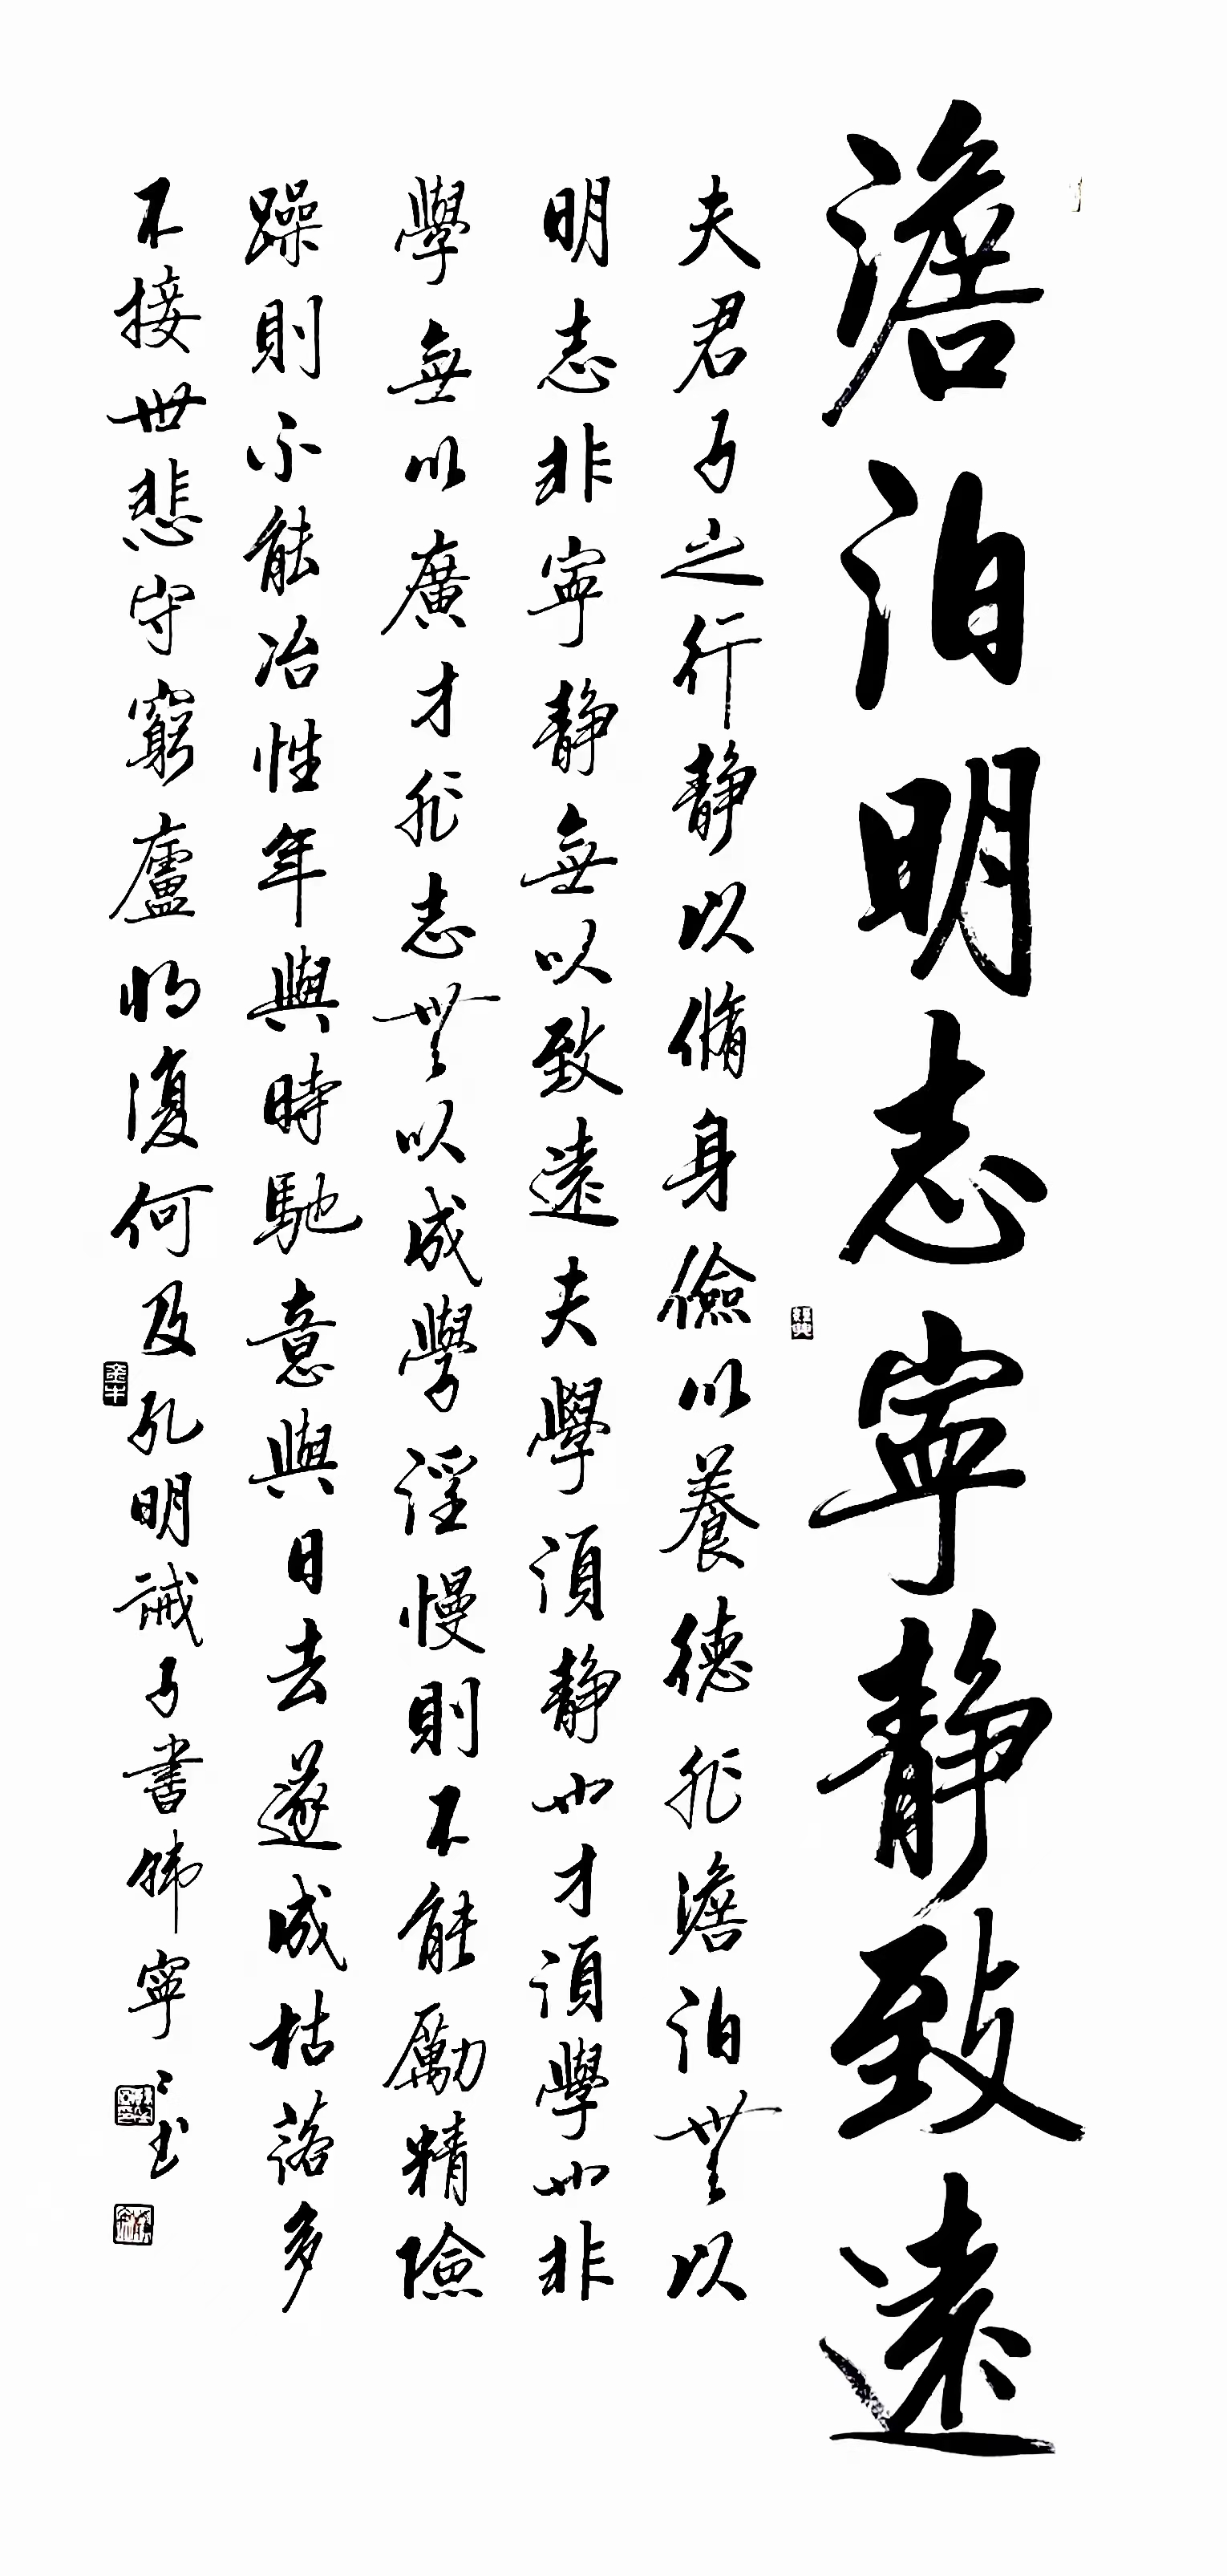 澹泊明志寧靜致遠
夫君子之行静以脩身儉以養德非澹泊無以
明志非寧静無以致遠夫學須静也才須學也非
學無以廣才非志無以成學淫慢則不能勵精險
躁則不能冶性年與時馳意與日去遂成枯落多
不接世悲守窮廬將復何及孔明誡子書 寧